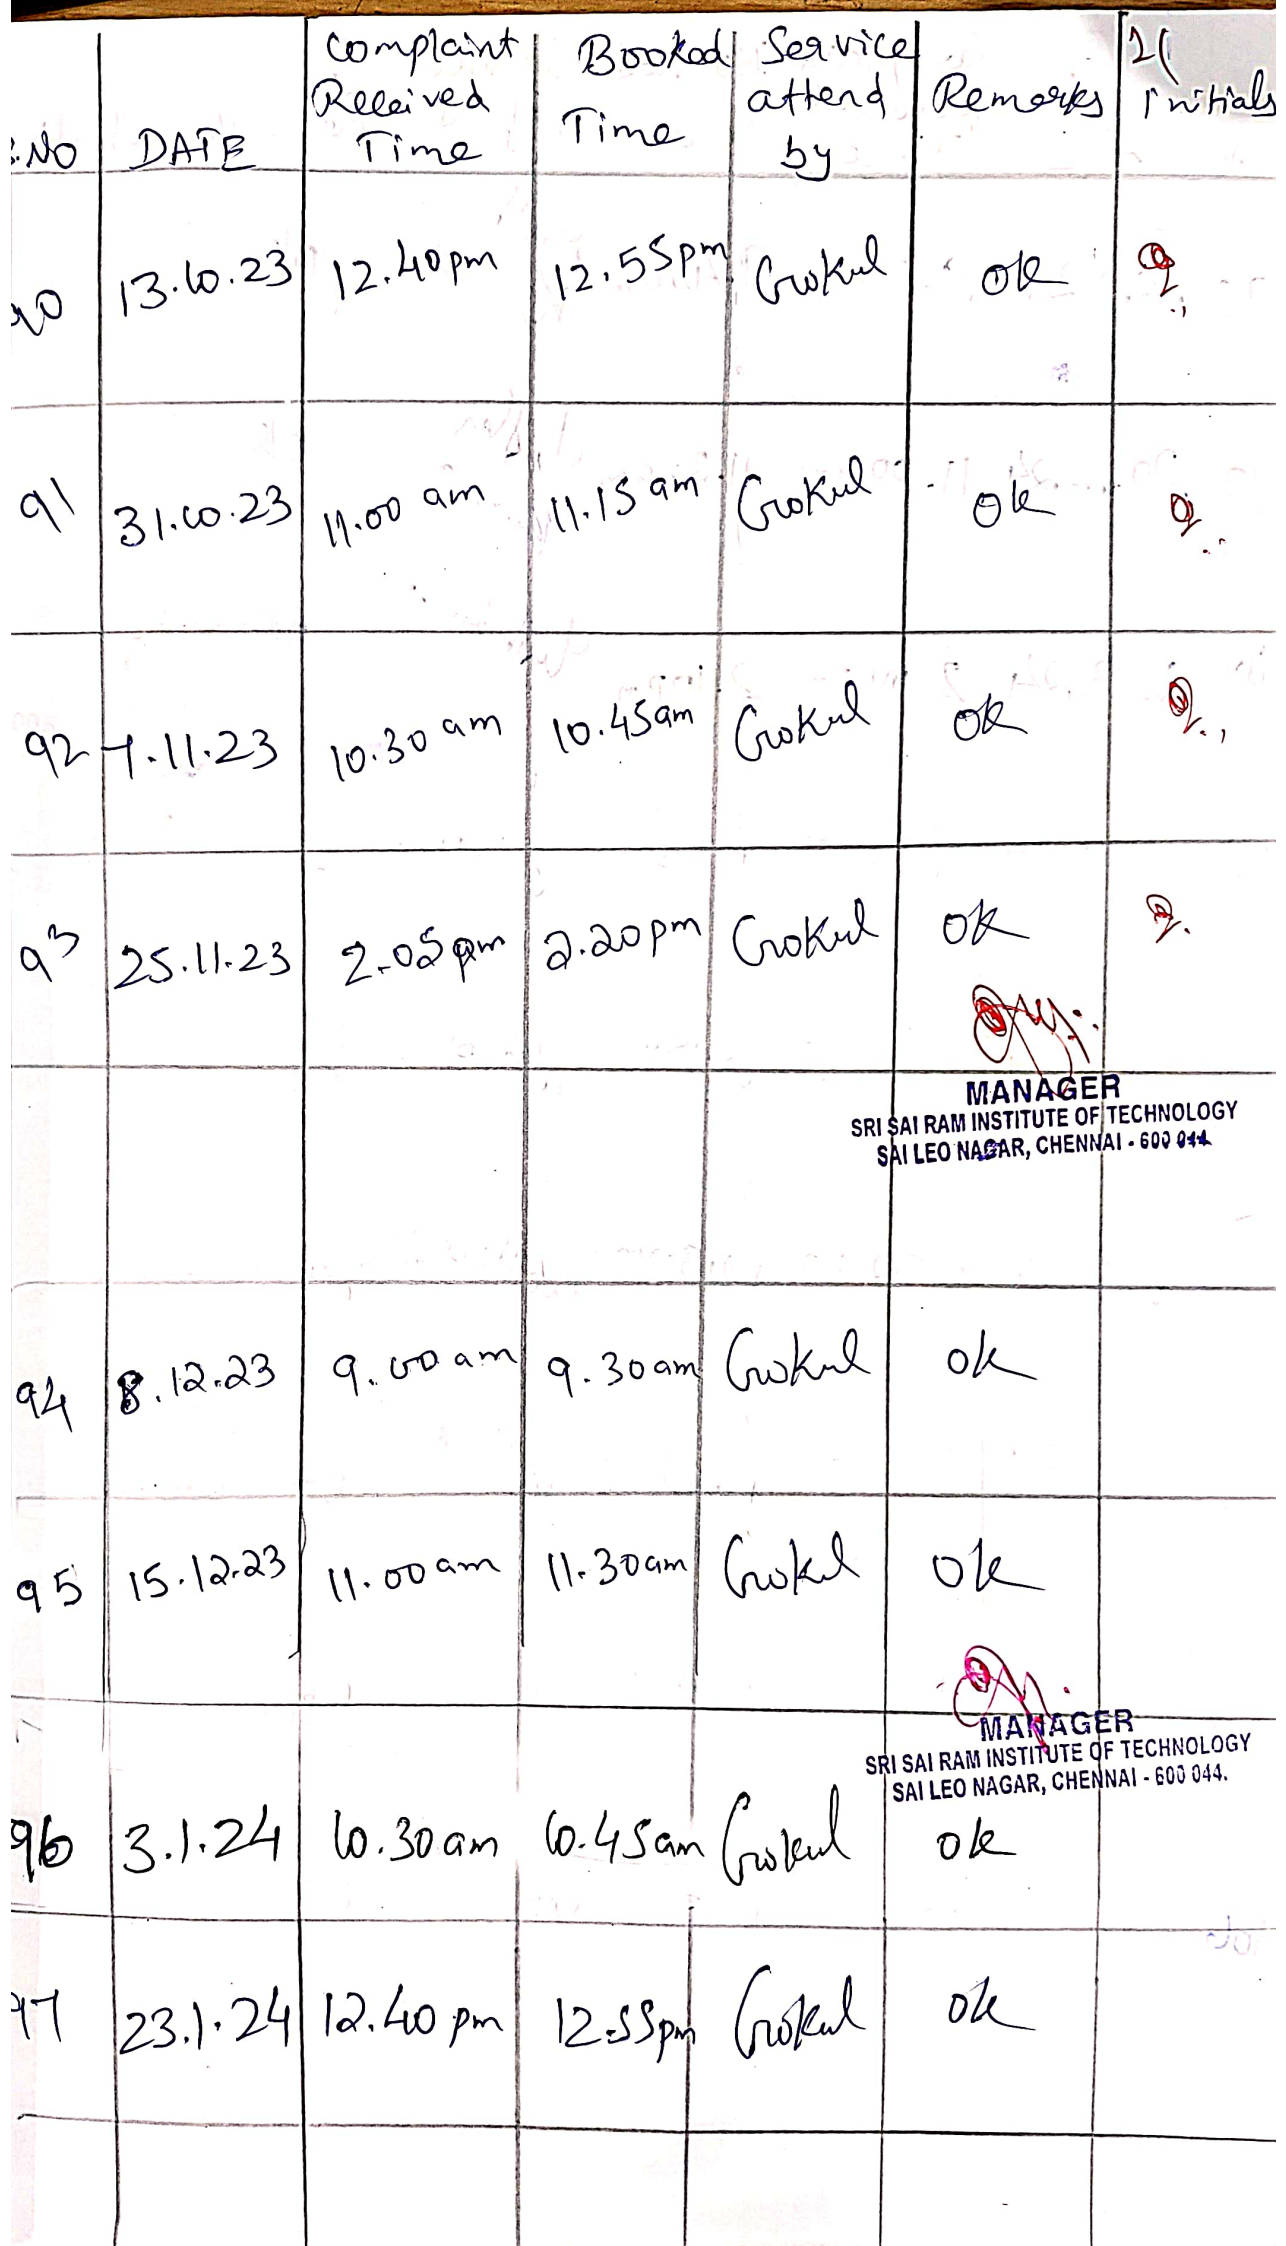 21
S.NO DATE Complaint Received Time Booked Time Service attend by Remarks Initials
90 13.10.23 12.40pm 12.55pm Gokul ok
91 31.10.23 11.00 am 11.15 am Gokul ok
92 7.11.23 10.30 am 10.45am Gokul ok
93 25.11.23 2.05pm 2.20pm Gokul ok
MANAGER
SRI SAI RAM INSTITUTE OF TECHNOLOGY
SAI LEO NAGAR, CHENNAI - 600 044.
94 8.12.23 9.00 am 9.30am Gokul ok
95 15.12.23 11.00am 11.30am Gokul ok
MANAGER
SRI SAI RAM INSTITUTE OF TECHNOLOGY
SAI LEO NAGAR, CHENNAI - 600 044.
96 3.1.24 10.30am 10.45am Gokul ok
97 23.1.24 12.40 pm 12.55pm Gokul ok